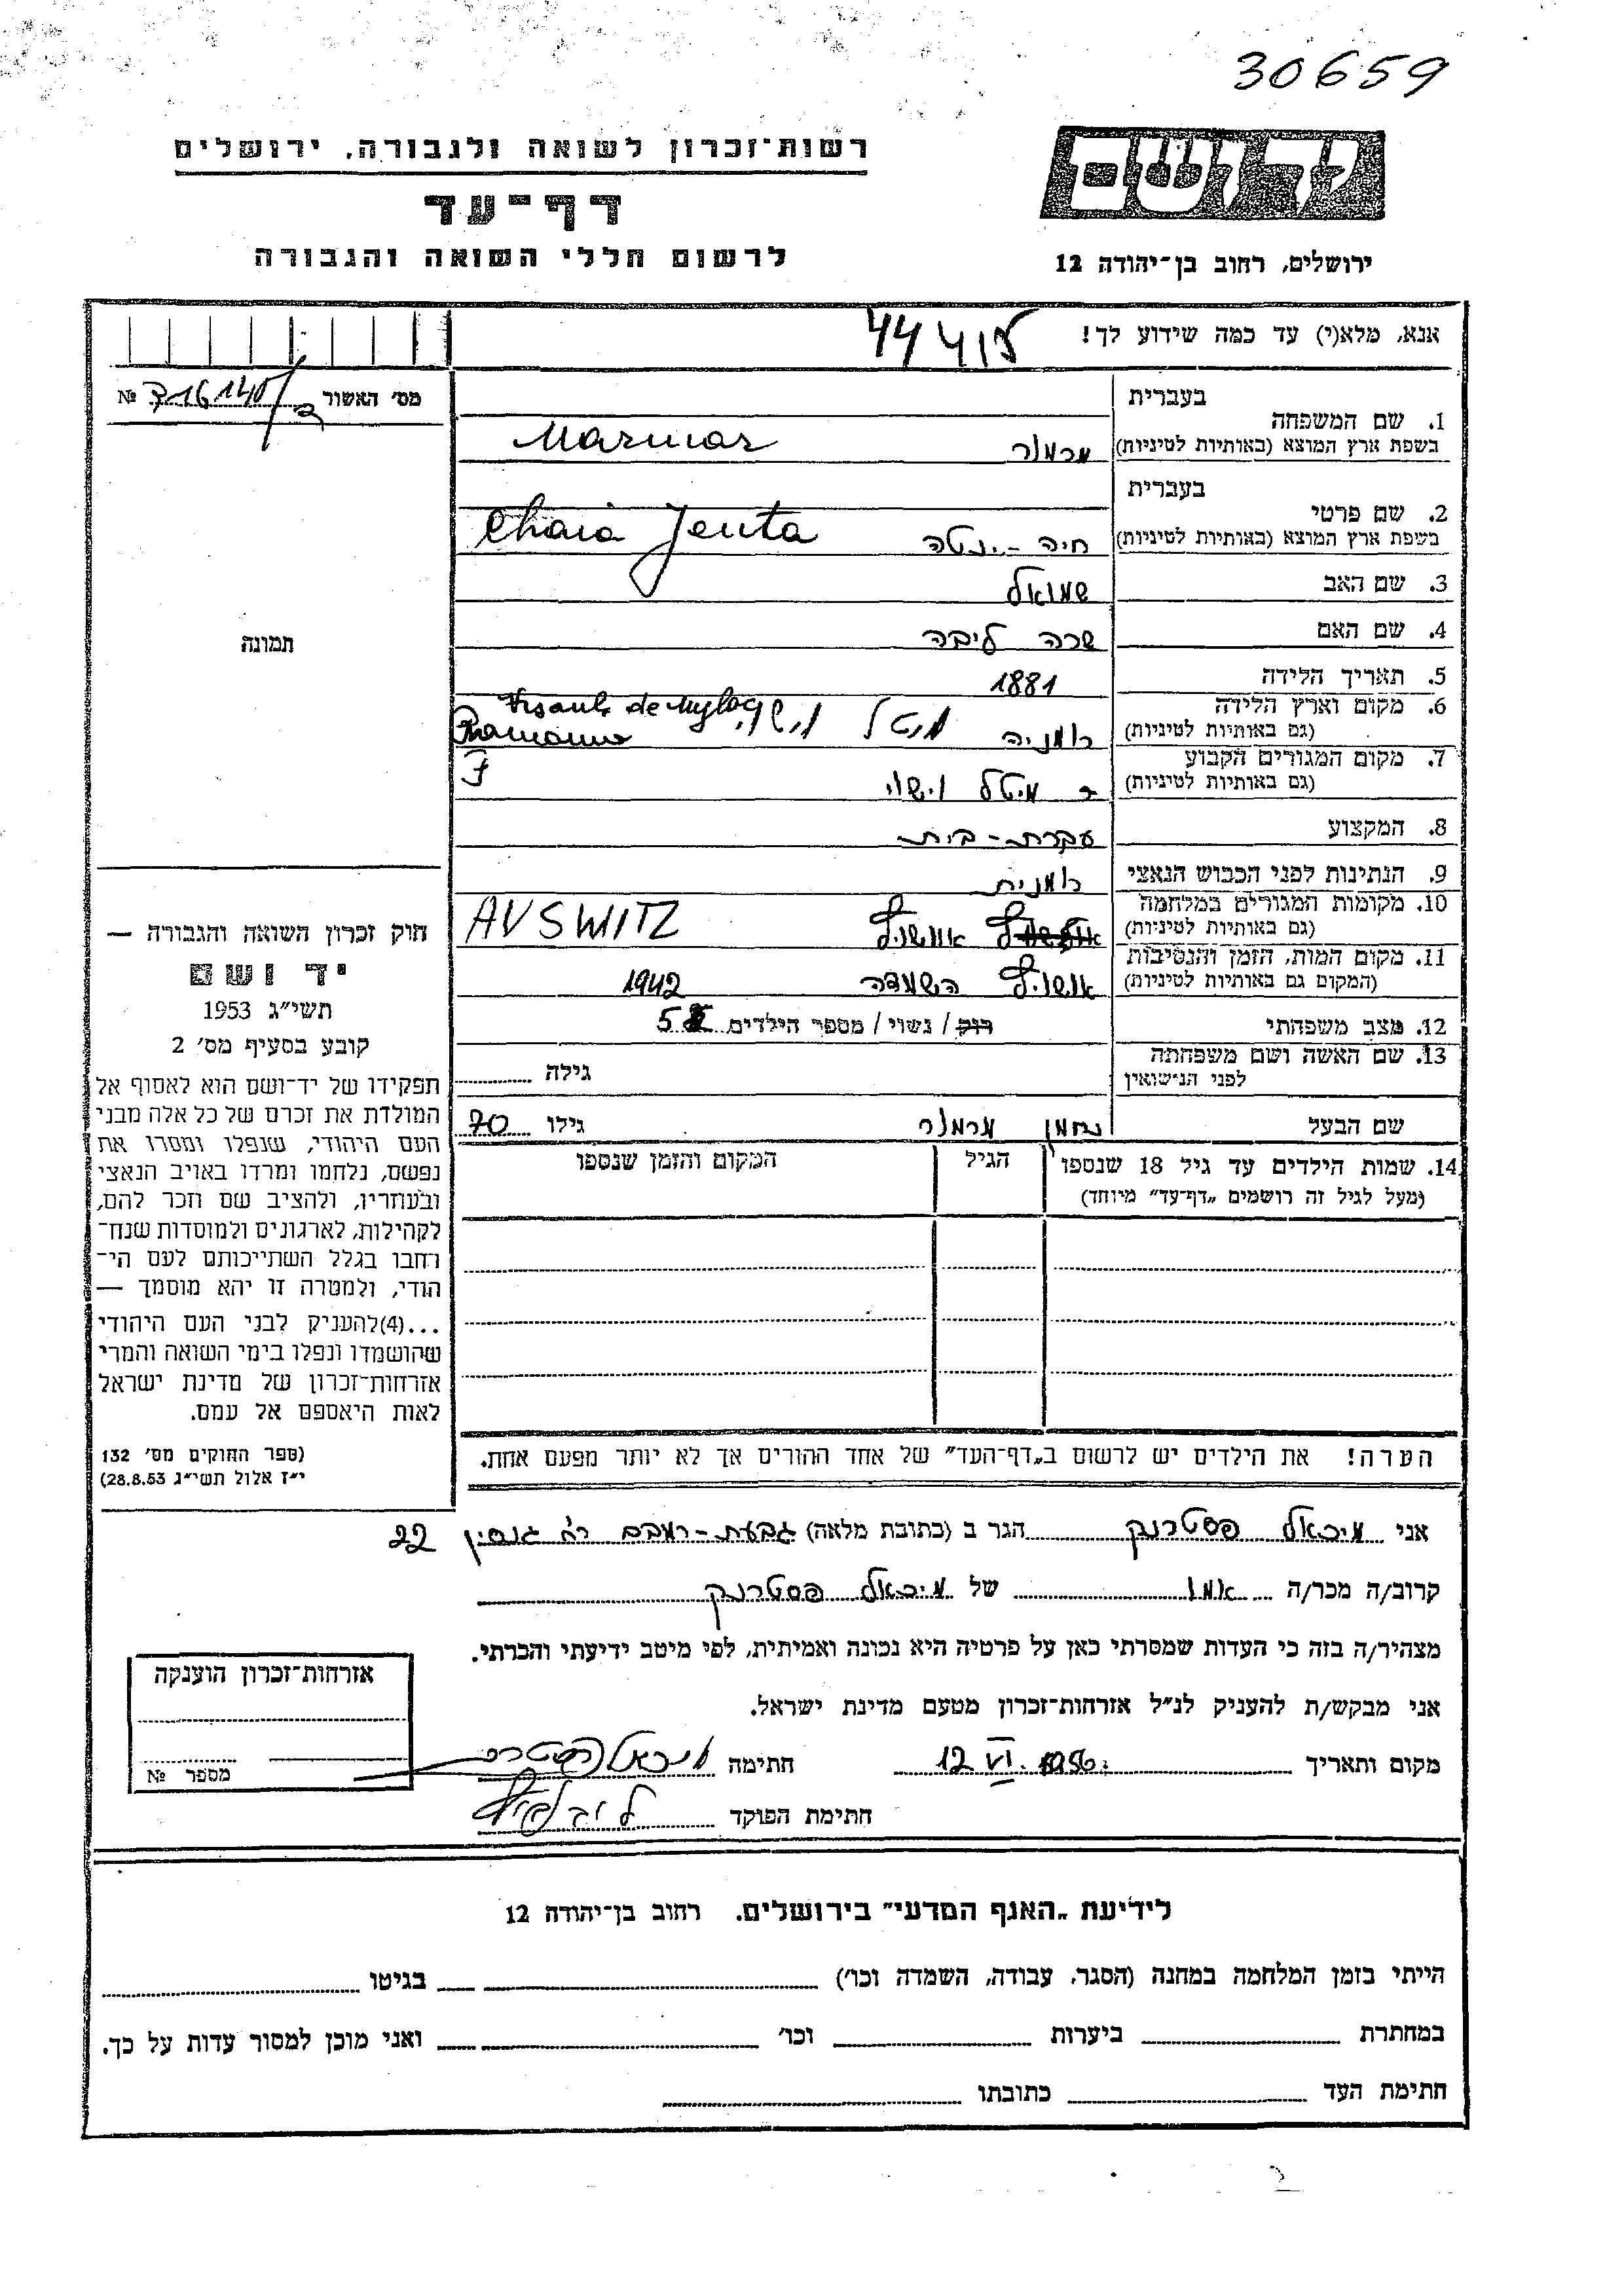 30659
ידושם
רשות־זכרון לשואה ולגבורה, ירושלים
דף־עד
לרשום חללי השואה והגבורה
ירושלים, רחוב בן־יהודה 12
אנא, מלא(י) עד כמה שידוע לך!
מס׳ האשור № 716140/
בעברית
1. שם המשפחה
בשפת ארץ המוצא (באותיות לטיניות) מרמור Marmor
בעברית
2. שם פרטי
בשפת ארץ המוצא (באותיות לטיניות) חיה - ינטה Chaia Jenta
3. שם האב שמואל
4. שם האם שרה ליבה
תמונה
5. תאריך הלידה 1881
6. מקום וארץ הלידה
(גם באותיות לטיניות) רומניה
7. מקום המגורים הקבוע
(גם באותיות לטיניות)
8. המקצוע עקרת - בית
9. הנתינות לפני הכבוש הנאצי רומנית
10. מקומות המגורים במלחמה
(גם באותיות לטיניות) AVSWITZ
11. מקום המות, הזמן והנסיבות
(המקום גם באותיות לטיניות) השמדה 1942
12. מצב משפחתי רווק / נשוי / מספר הילדים 5
13. שם האשה ושם משפחתה
לפני הנישואין גילה
שם הבעל נחמן מרמור גילו 70
14. שמות הילדים עד גיל 18 שנספו הגיל המקום והזמן שנספו
(מעל לגיל זה רושמים „דף־עד״ מיוחד)
הערה! את הילדים יש לרשום ב„דף־העד״ של אחד ההורים אך לא יותר מפעם אחת.
חוק זכרון השואה והגבורה —
יד ושם
תשי״ג 1953
קובע בסעיף מס׳ 2
תפקידו של יד־ושם הוא לאסוף אל
המולדת את זכרם של כל אלה מבני
העם היהודי, שנפלו ומסרו את
נפשם, נלחמו ומרדו באויב הנאצי
ובעוזריו, ולהציב שם וזכר להם,
לקהילות, לארגונים ולמוסדות שנח־
רבו בגלל השתייכותם לעם הי־
הודי, ולמטרה זו יהא מוסמך —
...(4)להעניק לבני העם היהודי
שהושמדו ונפלו בימי השואה והמרי
אזרחות־זכרון של מדינת ישראל
לאות היאספם אל עמם.
(ספר החוקים מס׳ 132
י״ז אלול תשי״ג 28.8.53)
אני מיכאל פסטרנק הגר ב (כתובת מלאה) גבעת - רמבם 22
קרוב/ה מכר/ה של מיכאל פסטרנק
מצהיר/ה בזה כי העדות שמסרתי כאן על פרטיה היא נכונה ואמיתית, לפי מיטב ידיעתי והכרתי.
אני מבקש/ת להעניק לנ״ל אזרחות־זכרון מטעם מדינת ישראל.
מקום ותאריך 12 VI. 1956. חתימה מיכאל פסטרנק
חתימת הפוקד
אזרחות־זכרון הוענקה
מספר №
לידיעת „האגף המדעי״ בירושלים. רחוב בן־יהודה 12
הייתי בזמן המלחמה במחנה (הסגר, עבודה, השמדה וכו׳) בגיטו
במחתרת ביערות וכו׳ ואני מוכן למסור עדות על כך.
חתימת העד כתובתו